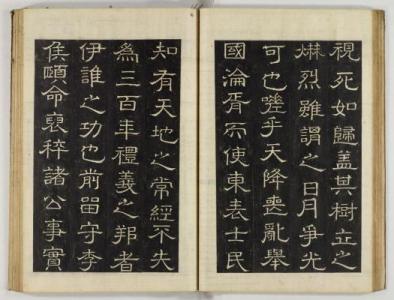 視死如歸蓋其樹立之
焃烈雖謂之日月爭光
可也嗟乎天降喪亂舉
國淪胥而使東表士民
知有天地之常經不失
爲三百年禮義之邦者
伊誰之功也前留守李
侯頤命裒稡諸公事實